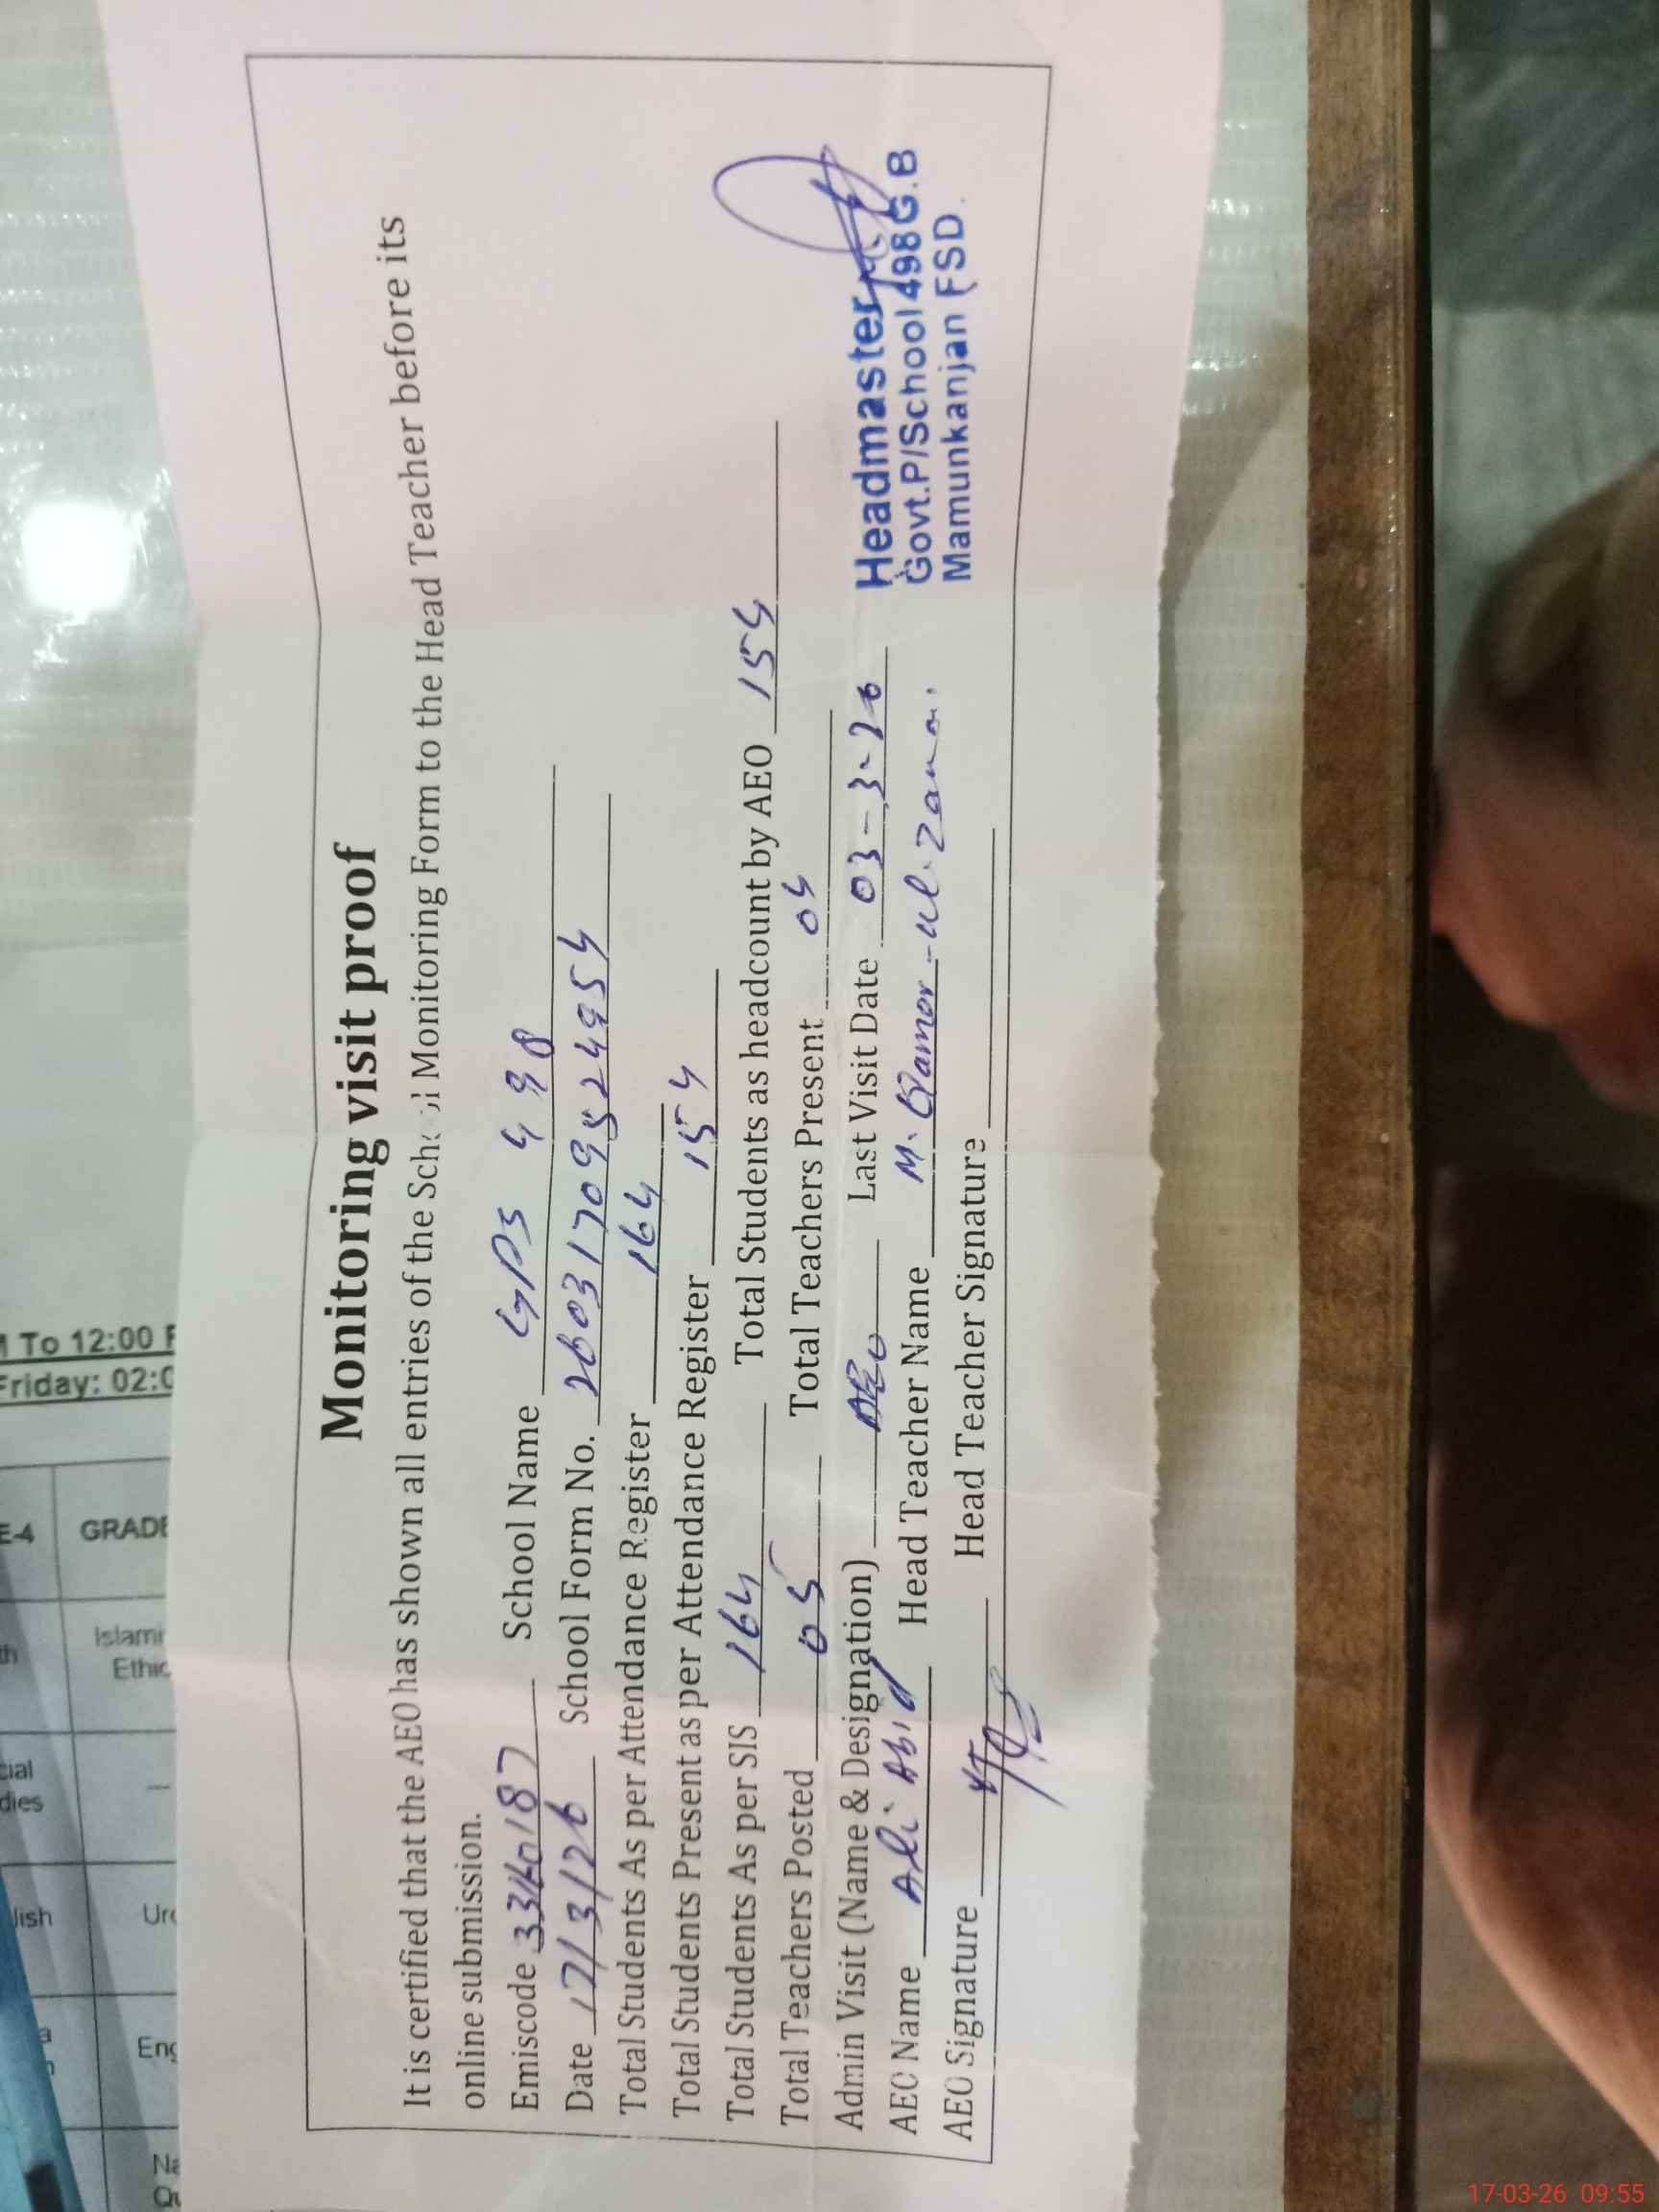 Monitoring visit proof
It is certified that the AEO has shown all entries of the School Monitoring Form to the Head Teacher before its
online submission.
Emiscode 33160187 School Name GPS 498
Date 17/3/26 School Form No. 26031709524954
Total Students As per Attendance Register 164
Total Students Present as per Attendance Register 154
Total Students As per SIS 164 Total Students as headcount by AEO 154
Total Teachers Posted 05 Total Teachers Present 04
Admin Visit (Name & Designation) Last Visit Date 03-3-26
AEO Name Ali Abid Head Teacher Name M. Qamar-ul-Zaman.
AEO Signature Head Teacher Signature
Headmaster
Govt.P/School 498G.B
Mamunkanjan FSD.
To 12:00
Friday: 02:
E-4 GRADE
17-03-26 09:55